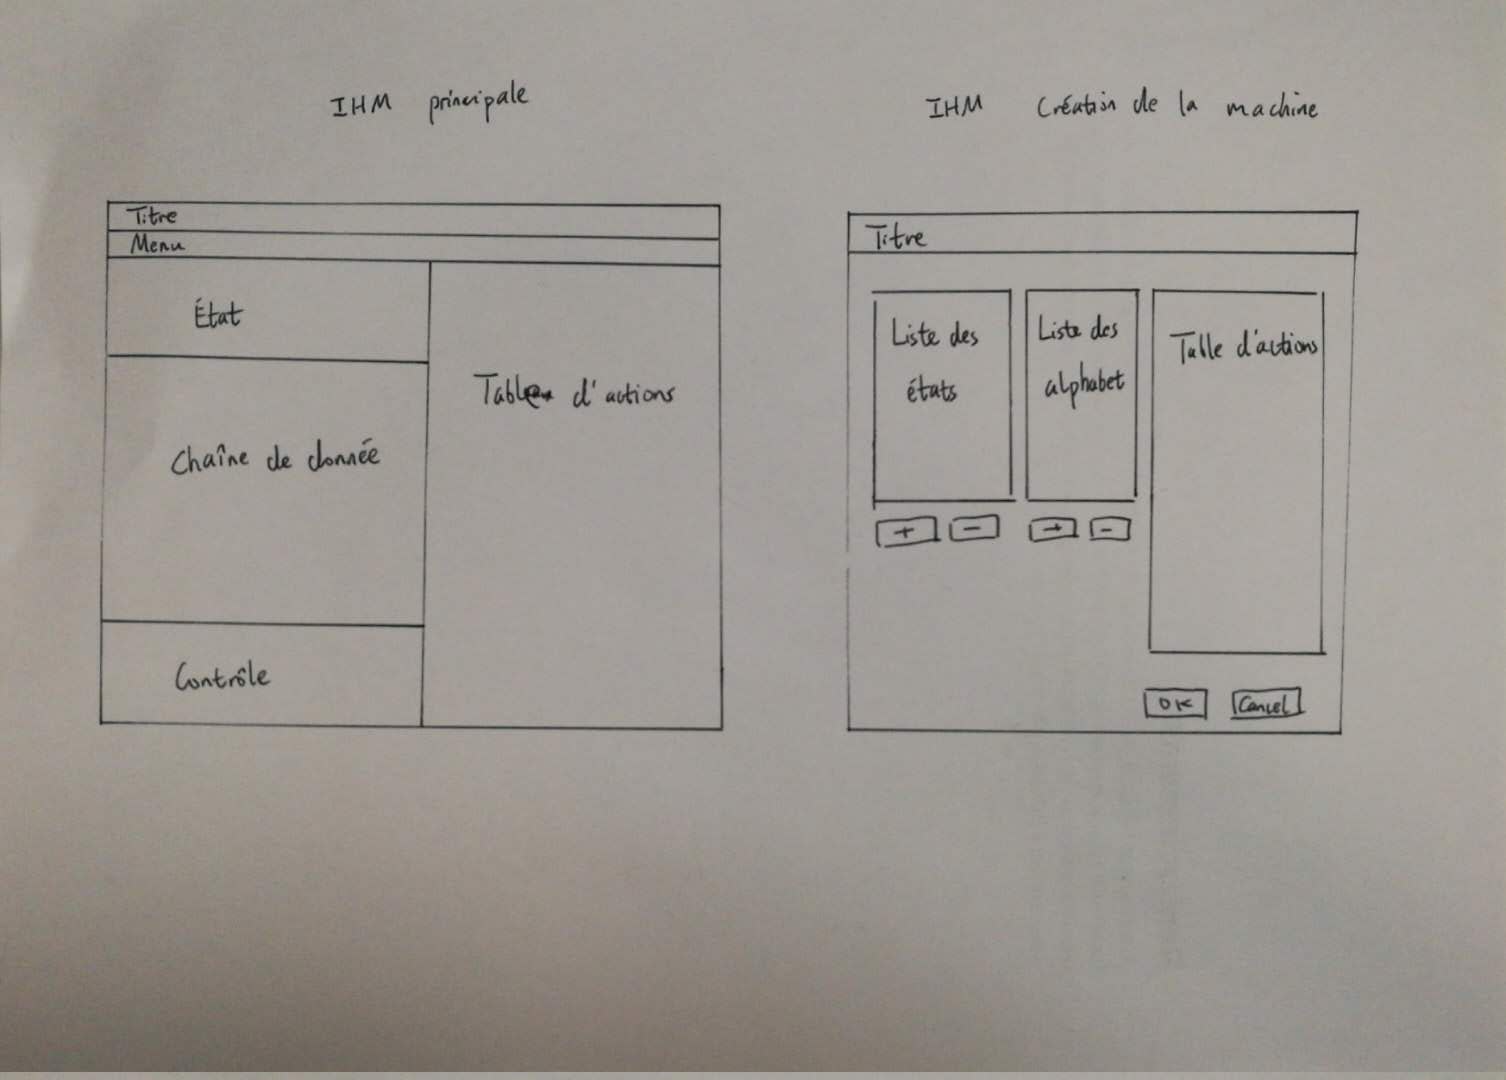 IHM principale
Titre
Menu
État
Chaîne de donnée
Contrôle
Table d'actions
IHM Création de la machine
Titre
Liste des
états
+ -
Liste des
alphabet
+ -
Table d'actions
OK Cancel